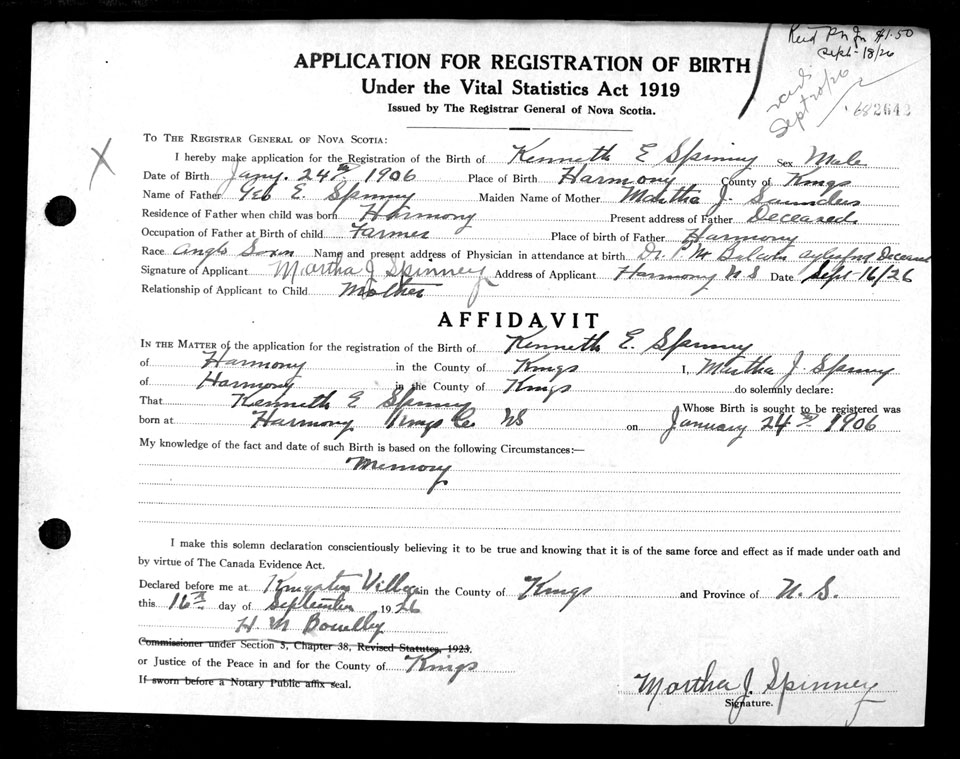 Recd Pn Jn $1.50
Sept-18/26
APPLICATION FOR REGISTRATION OF BIRTH
Under the Vital Statistics Act 1919
Issued by The Registrar General of Nova Scotia.
Sept 20/26
682642
TO THE REGISTRAR GENERAL OF NOVA SCOTIA:
I hereby make application for the Registration of the Birth of Kenneth E Spinney Sex Male
Date of Birth Jany. 24th 1906 Place of Birth Harmony County of Kings
Name of Father Geo E. Spinney Maiden Name of Mother Martha J. Saunders
Residence of Father when child was born Harmony Present address of Father Deceased
Occupation of Father at Birth of child Farmer Place of birth of Father Harmony
Race Anglo Saxon Name and present address of Physician in attendance at birth Dr. M Aylesford Deceased
Signature of Applicant Martha J Spinney Address of Applicant Harmony N S Date Sept 16/26
Relationship of Applicant to Child Mother
AFFIDAVIT
IN THE MATTER of the application for the registration of the Birth of Kenneth E. Spinney
of Harmony in the County of Kings I, Martha J. Spinney
of Harmony in the County of Kings do solemnly declare:
That Kenneth E Spinney Whose Birth is sought to be registered was
born at Harmony Kings Co. NS on January 24th 1906
My knowledge of the fact and date of such Birth is based on the following Circumstances:—
Memory
I make this solemn declaration conscientiously believing it to be true and knowing that it is of the same force and effect as if made under oath and
by virtue of The Canada Evidence Act.
Declared before me at Kingston Village in the County of Kings and Province of N. S.
this 16th day of September 1926
H. M
Commissioner under Section 5, Chapter 38, Revised Statutes, 1923.
or Justice of the Peace in and for the County of Kings
If sworn before a Notary Public affix seal.
Martha J. Spinney
Signature.